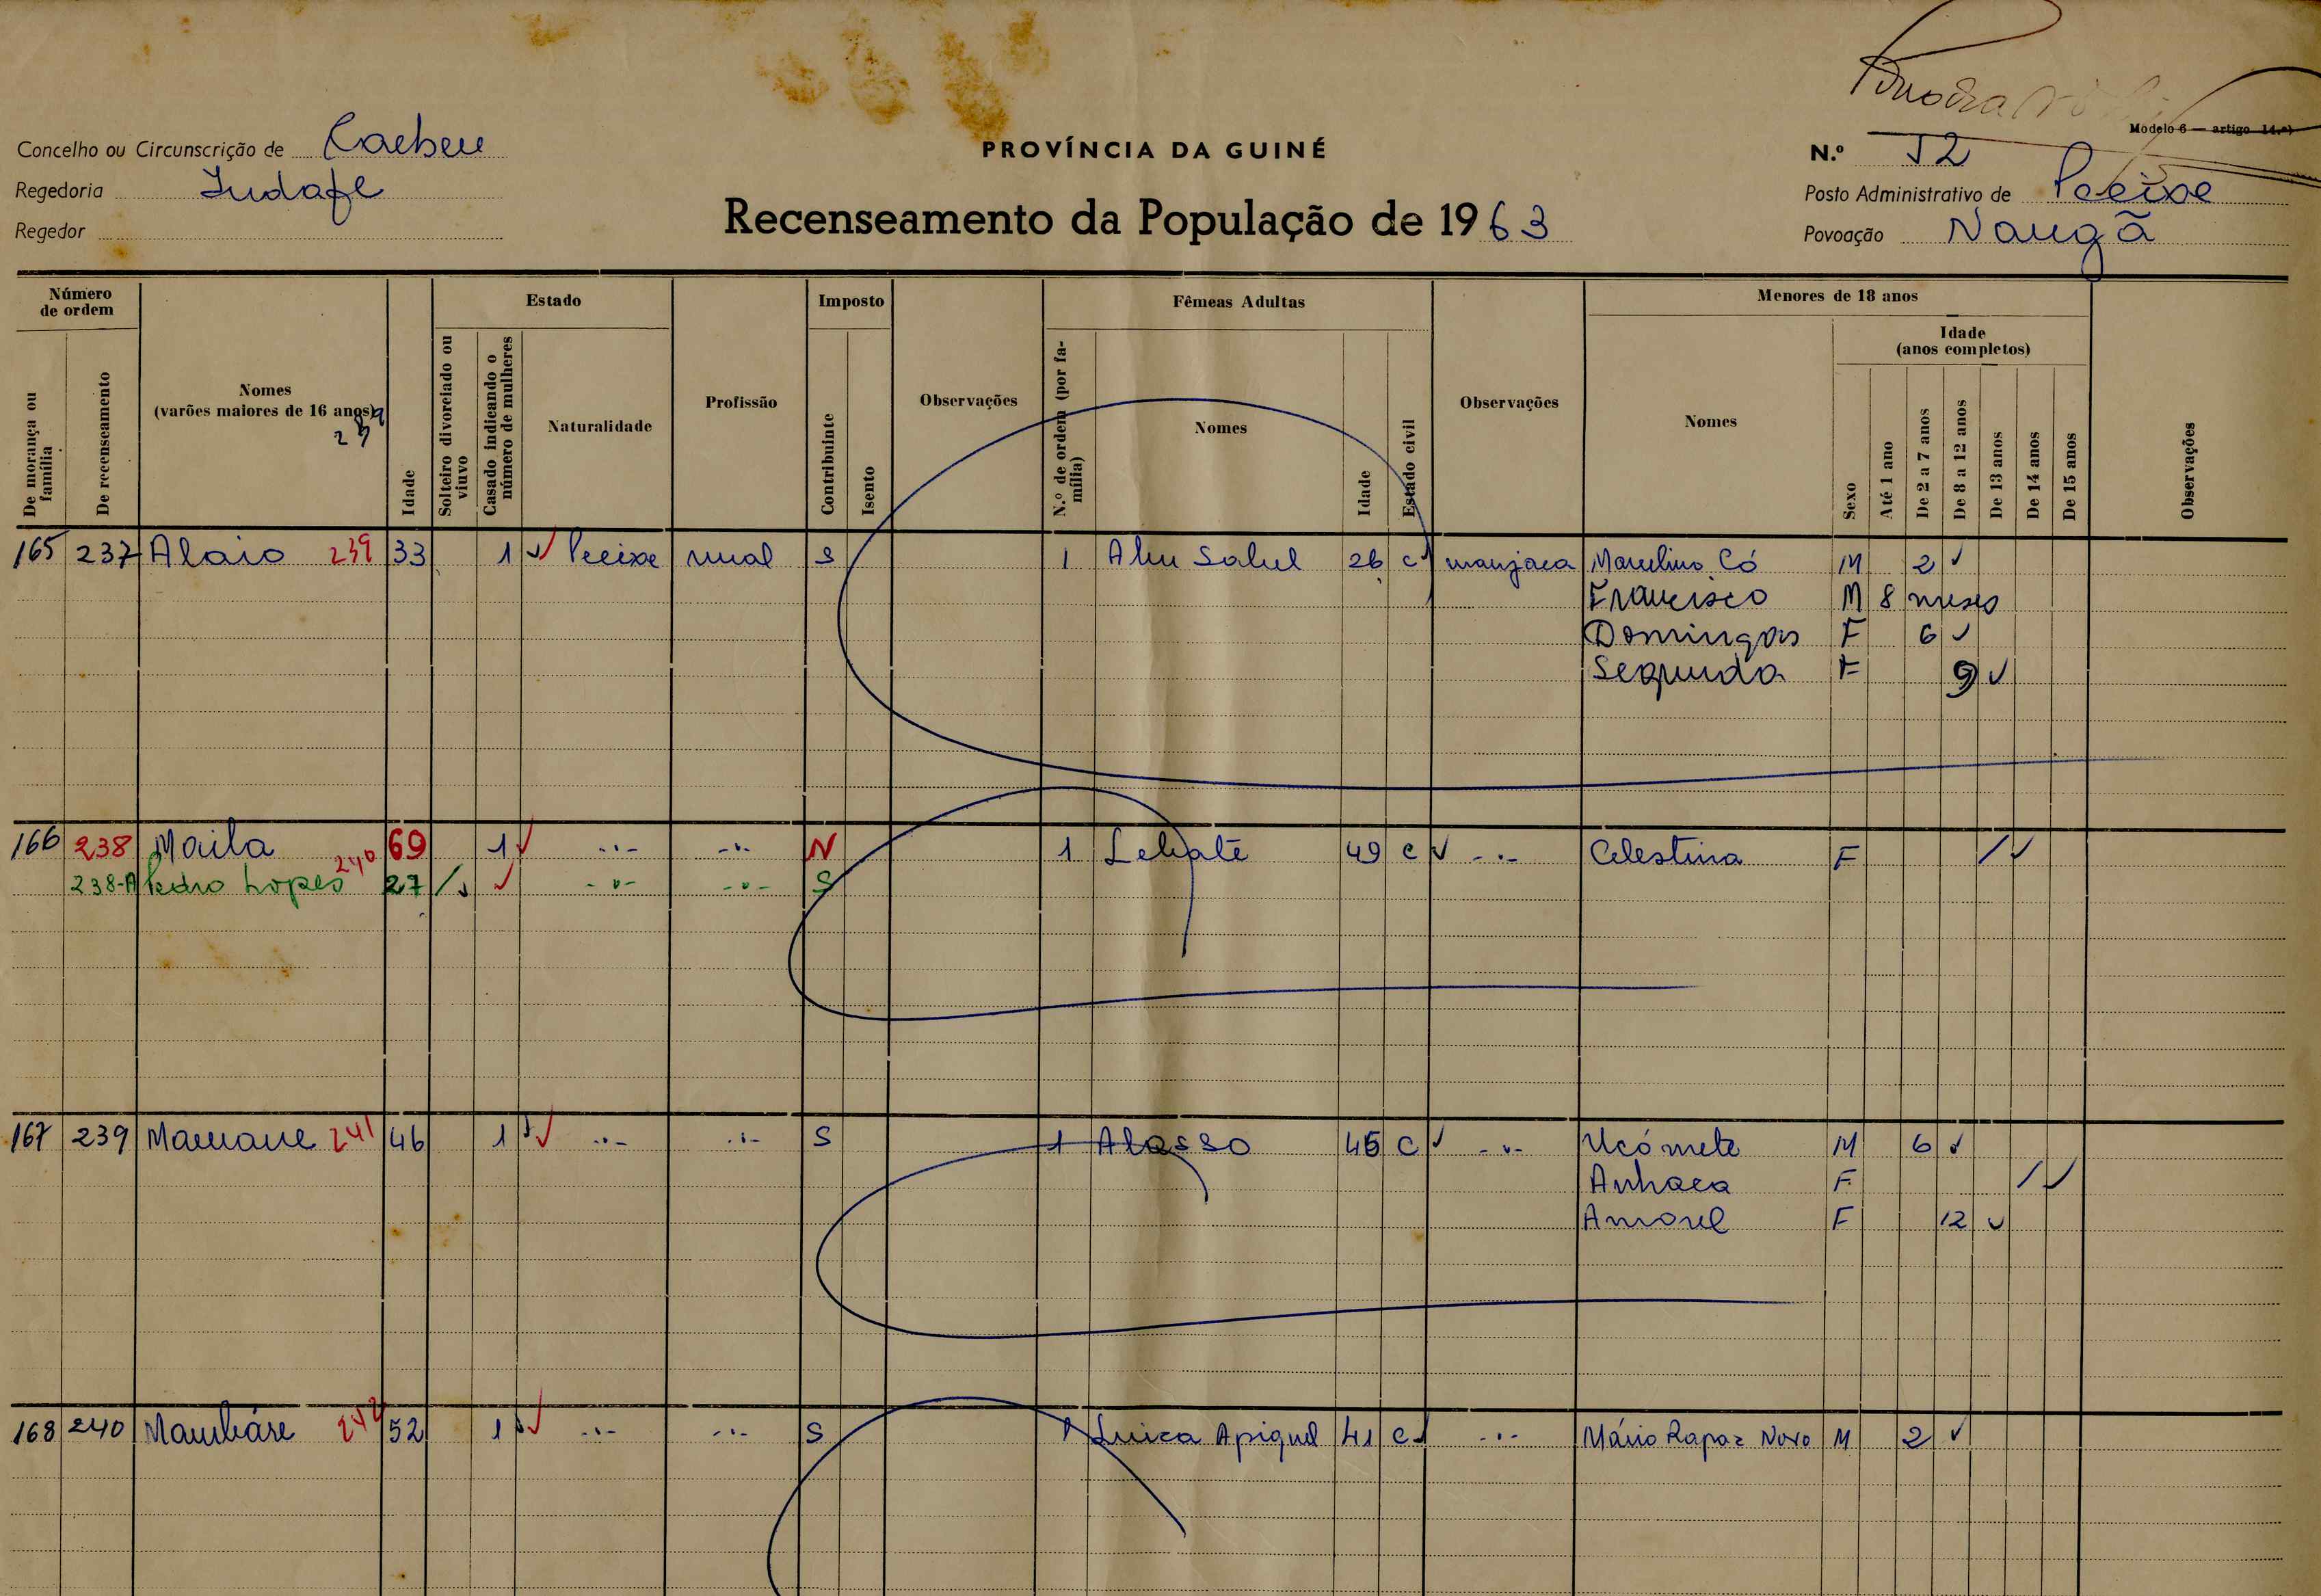 Modelo 6 — artigo 14.º)
Concelho ou Circunscrição de Caeheu
PROVÍNCIA DA GUINÉ
N.º 52
Regedoria Indafe
Posto Administrativo de Pecixe
Regedor
Recenseamento da População de 1963
Povoação Nangã
Número de ordem
Estado
Imposto
Fêmeas Adultas
Menores de 18 anos
Idade
(anos completos)
De morança ou família
De recenseamento
Nomes
(varões maiores de 16 anos)
Idade
Solteiro divorciado ou viuvo
Casado indicando o número de mulheres
Naturalidade
Profissão
Contribuinte
Isento
Observações
N.º de ordem (por família)
Nomes
Idade
Estado civil
Observações
Nomes
Sexo
Até 1 ano
De 2 a 7 anos
De 8 a 12 anos
De 13 anos
De 14 anos
De 15 anos
Observações
165 237 Alaio 239 33 1 Pecixe rural S 1 26 c manjaca Marcelino Có M 2
Francisco M 8 meses
Domingas F 6
Segunda F 9
166 238 Maila 69 1 -·- -·- N 1 Lehate 49 c -·- Celestina F /
238-A Pedro Lopes 240 27 / -·- -·- S
167 239 Mamane 241 46 1 -·- -·- S 1 Alasso 45 C -·- Ucómete M 6
Anhaca F /
Amorel F 12
168 240 242 52 1 -·- -·- S 1 Luisa Apiquel 41 c -·- Mário Rapaz Novo M 2